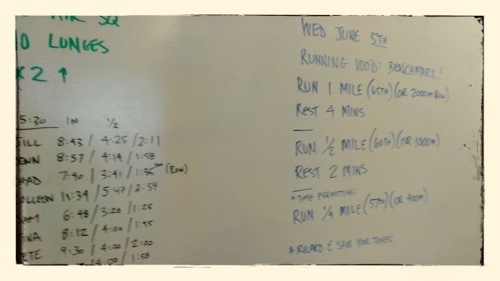 AIR SQ
LUNGES
X 2 ↑
5:30 1M 1/2
ILL 8:43 / 4:25 / 2:11
8:57 / 4:14 / 1:58
HAD 7:40 / 3:41 / 1:35 (ROW)
OLLEEN 11:34 / 5:47 / 2:54
6:48 / 3:20 / 1:25
INA 8:12 / 4:00 / 1:55
ETE 9:30 / 4:00 / 2:00
4:00 / 1:58
WED JUNE 5TH
RUNNING WOD: BENCHMARK!
RUN 1 MILE (65TH) (OR 2000M ROW)
REST 4 MINS
RUN 1/2 MILE (60TH) (OR 1000M)
REST 2 MINS
* TIME PERMITTING:
RUN 1/4 MILE (57TH) (OR 400M)
* RECORD & SAVE FOR